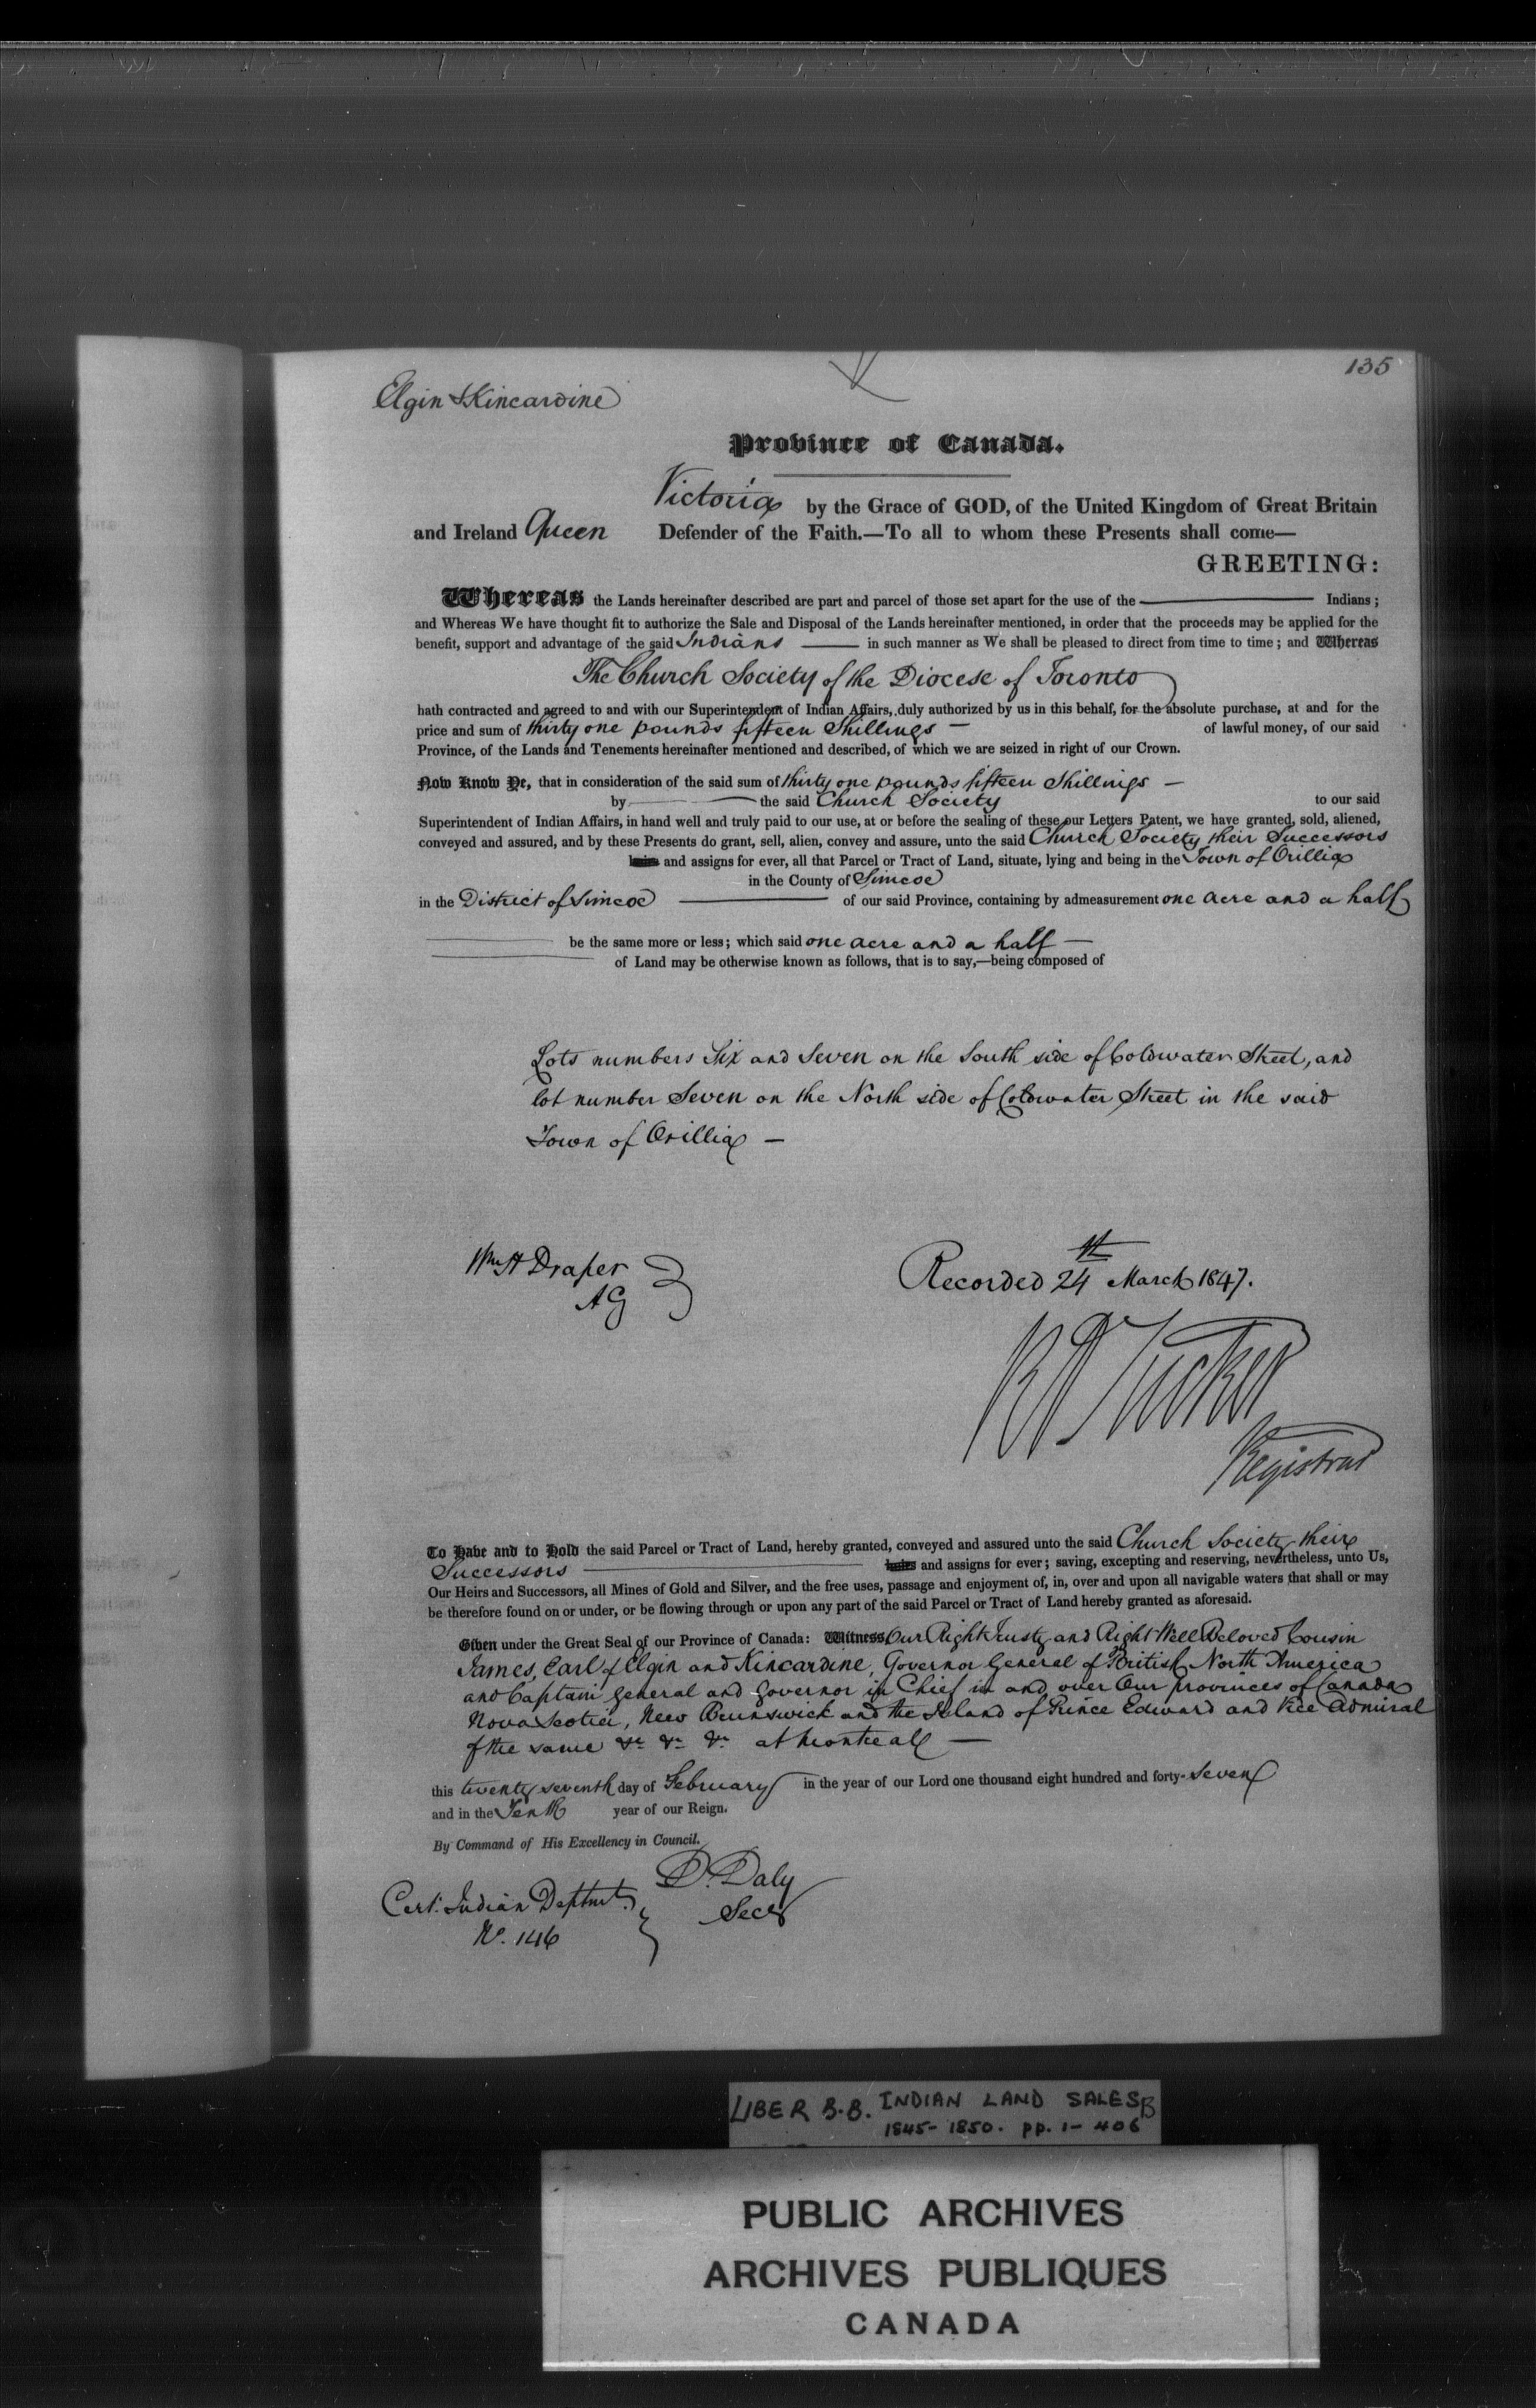 135
Elgin & Kincardine
Province of Canada.
Victoria by the Grace of GOD, of the United Kingdom of Great Britain
and Ireland Queen Defender of the Faith.—To all to whom these Presents shall come—
GREETING:
Whereas the Lands hereinafter described are part and parcel of those set apart for the use of the ——— Indians;
and Whereas We have thought fit to authorize the Sale and Disposal of the Lands hereinafter mentioned, in order that the proceeds may be applied for the
benefit, support and advantage of the said Indians —— in such manner as We shall be pleased to direct from time to time; and Whereas
The Church Society of the Diocese of Toronto
hath contracted and agreed to and with our Superintendent of Indian Affairs, duly authorized by us in this behalf, for the absolute purchase, at and for the
price and sum of thirty one pounds fifteen Shillings — of lawful money, of our said
Province, of the Lands and Tenements hereinafter mentioned and described, of which we are seized in right of our Crown.
Now Know Ye, that in consideration of the said sum of thirty one pounds fifteen Shillings —
by ——— the said Church Society to our said
Superintendent of Indian Affairs, in hand well and truly paid to our use, at or before the sealing of these our Letters Patent, we have granted, sold, aliened,
conveyed and assured, and by these Presents do grant, sell, alien, convey and assure, unto the said Church Society their Successors
heirs and assigns for ever, all that Parcel or Tract of Land, situate, lying and being in the Town of Orillia
in the County of Simcoe
in the District of Simcoe ——— of our said Province, containing by admeasurement one acre and a half
——— be the same more or less; which said one acre and a half —
——— of Land may be otherwise known as follows, that is to say,—being composed of
Lots numbers Six and Seven on the South side of Coldwater Street, and
lot number Seven on the North side of Coldwater Street in the said
Town of Orillia —
Wm H Draper
AG
Recorded 24th March 1847.
R A Tucker
Registrar
To Have and to Hold the said Parcel or Tract of Land, hereby granted, conveyed and assured unto the said Church Society their
Successors ——— heirs and assigns for ever; saving, excepting and reserving, nevertheless, unto Us,
Our Heirs and Successors, all Mines of Gold and Silver, and the free uses, passage and enjoyment of, in, over and upon all navigable waters that shall or may
be therefore found on or under, or be flowing through or upon any part of the said Parcel or Tract of Land hereby granted as aforesaid.
Given under the Great Seal of our Province of Canada: Witness Our Right Trusty and Right Well Beloved Cousin
James, Earl of Elgin and Kincardine, Governor General of British North America
and Captain General and Governor in Chief in and over Our provinces of Canada
Nova Scotia, New Brunswick and the Island of Prince Edward and Vice Admiral
of the same &c &c &c at Montreal —
this twenty seventh day of February in the year of our Lord one thousand eight hundred and forty-seven
and in the Tenth year of our Reign.
By Command of His Excellency in Council.
D. Daly
Secy
Cert. Indian Deptmt.
No. 146
LIBER B.B. INDIAN LAND SALES B
1845-1850. pp. 1-406
PUBLIC ARCHIVES
ARCHIVES PUBLIQUES
CANADA